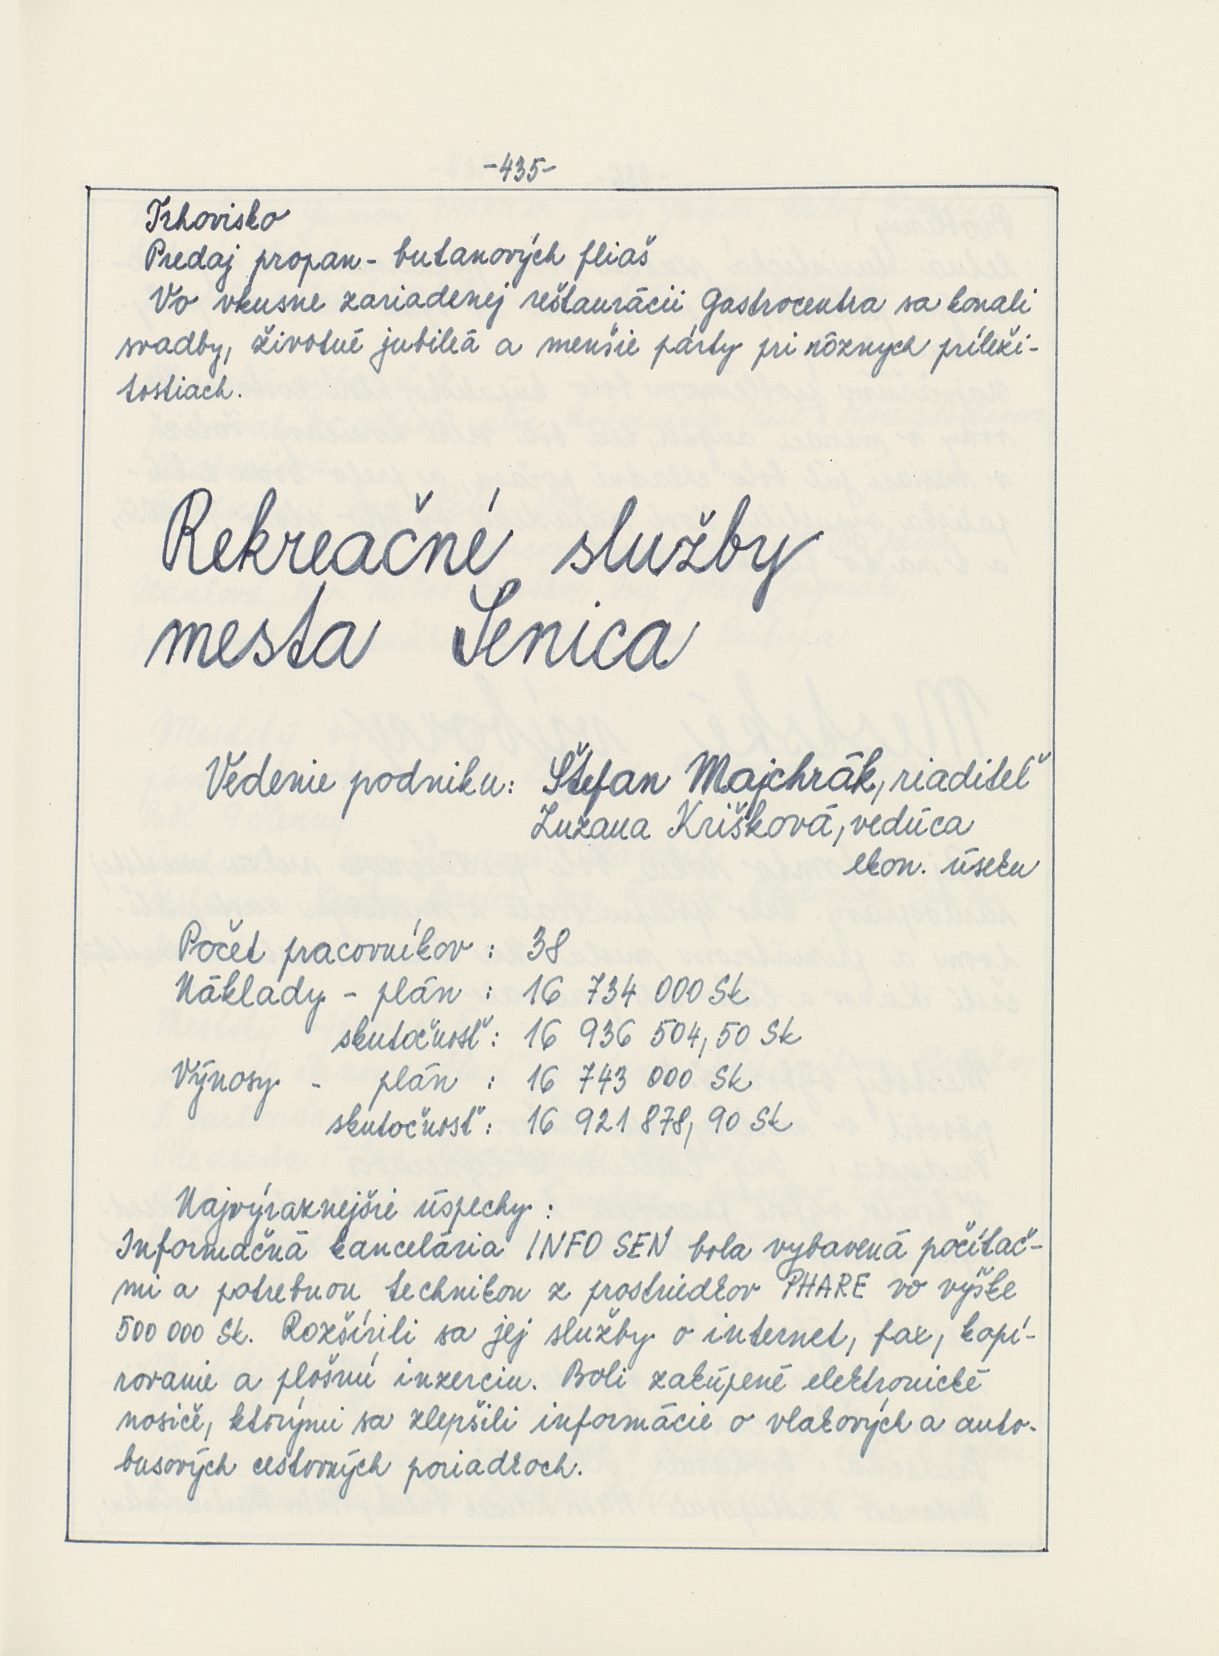 -435-
Trhovisko
Predaj propan - butanových fliaš
Vo vkusne zariadenej reštaurácii Gastrocentra sa konali
svadby, životné jubileá a menšie párty pri rôznych príleži-
tostiach.
Rekreačné služby
mesta Senica
Vedenie podniku: Štefan Majchrák, riaditeľ
Zuzana Krišková, vedúca
ekon. úseku
Počet pracovníkov : 38
Náklady - plán : 16 734 000 Sk
skutočnosť : 16 936 504,50 Sk
Výnosy - plán : 16 743 000 Sk
skutočnosť : 16 921 878,90 Sk
Najvýraznejšie úspechy :
Informačná kancelária INFO SEN bola vybavená počítač-
mi a potrebnou technikou z prostriedkov PHARE vo výške
500 000 Sk. Rozšírili sa jej služby o internet, fax, kopí-
rovanie a plošnú inzerciu. Boli zakúpené elektronické
nosiče, ktorými sa zlepšili informácie o vlakových a auto-
busových cestovných poriadkoch.